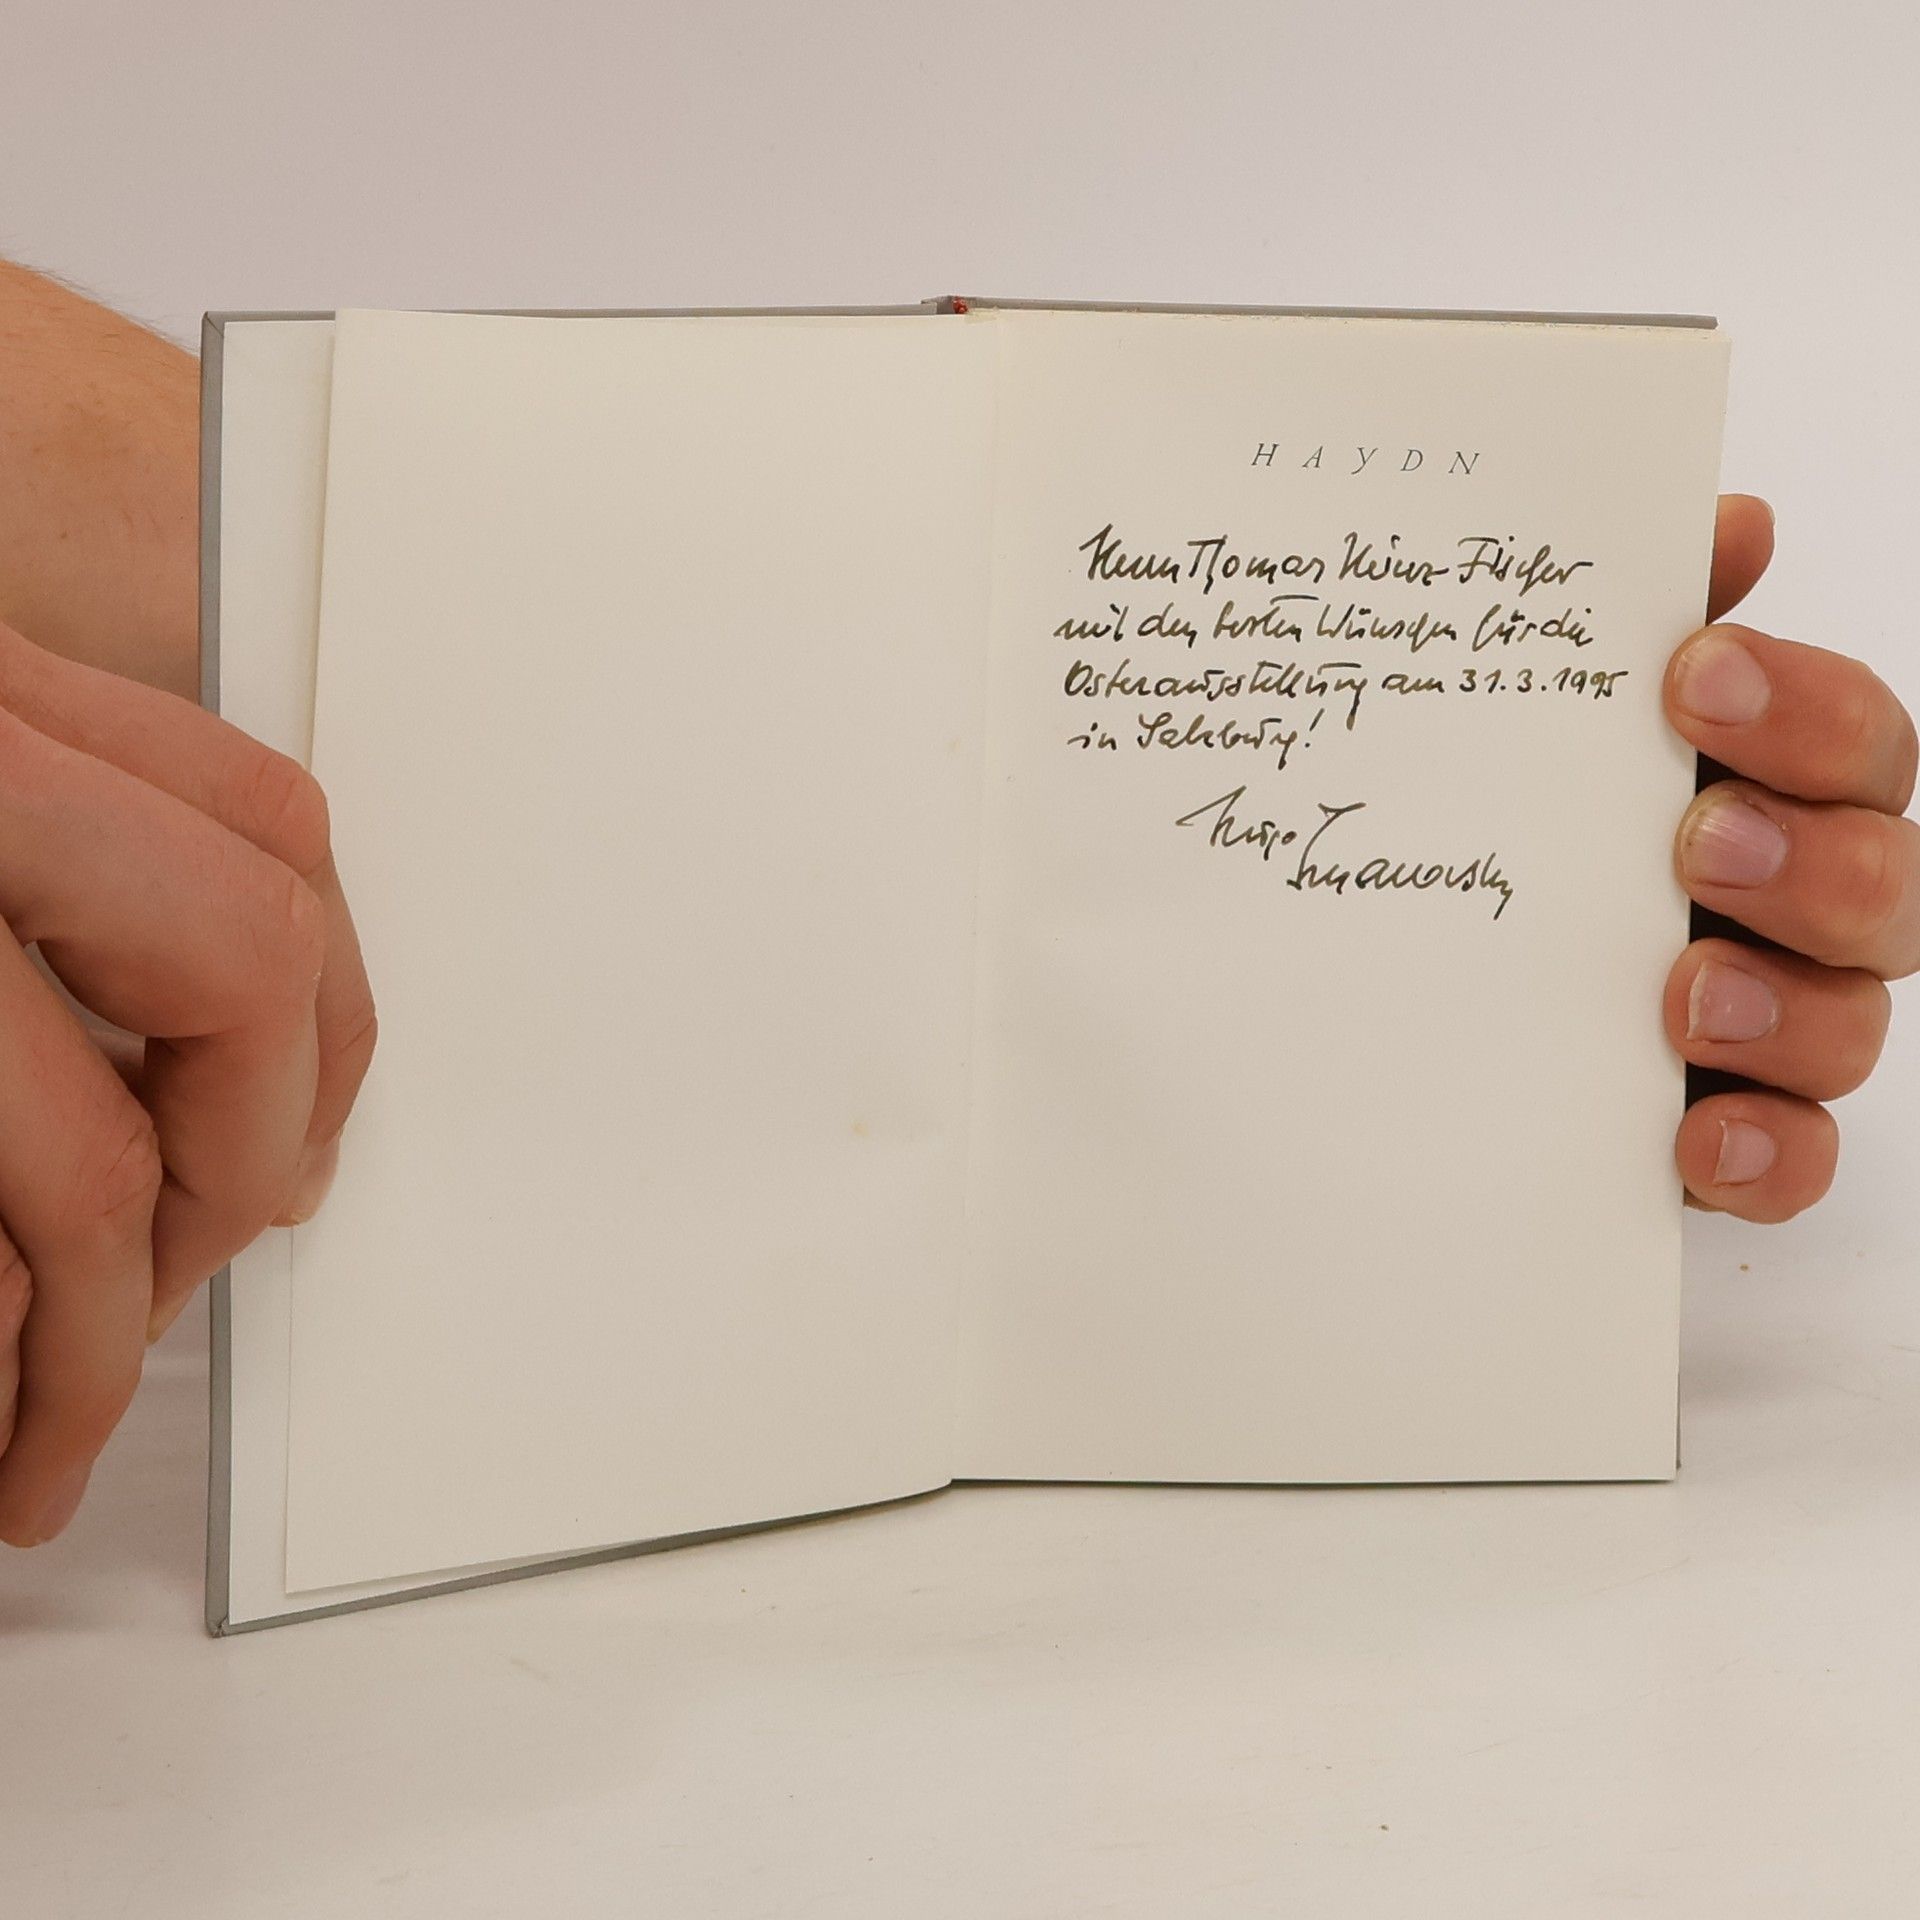 HAYDN
Herrn Thomas Heinz Fischer
mit den besten Wünschen für die
Osterausstellung am 31.3.1995
in Salzburg!
Hugo